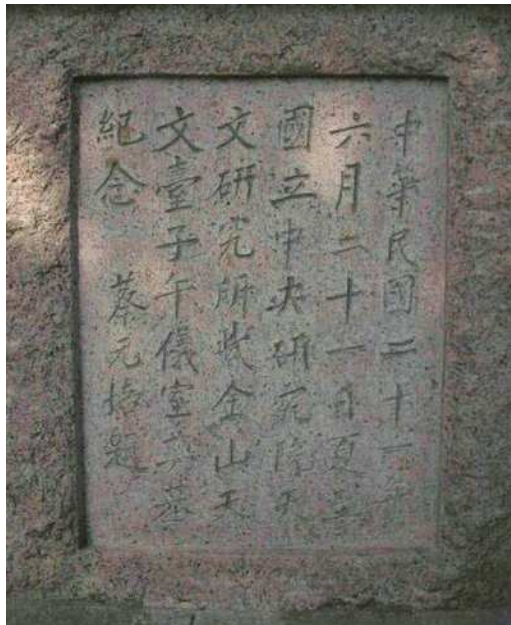 中華民國二十一年
六月二十一日夏至
國立中央研究院天
文研究所紫金山天
文臺子午儀室奠基
紀念 蔡元培題